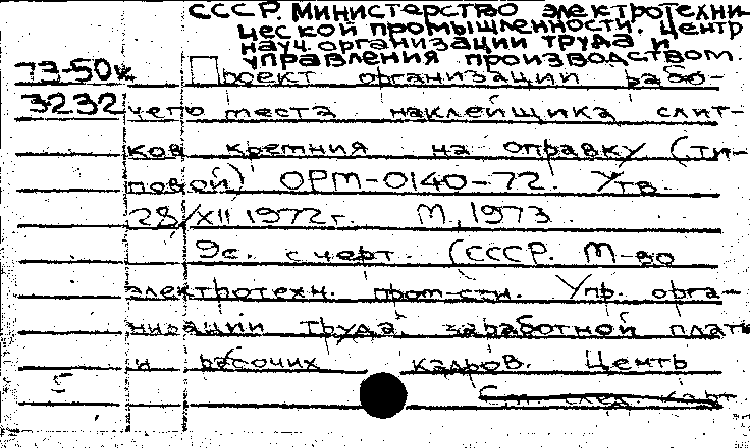 СССР. Министерство электротехни-
ческой промышленности. Центр
науч. организации труда и
управления производством.
73-50к Проект организации рабо-
3232 чего места наклейщика слит-
ков кремния на оправку (ти-
повой) ОРМ-0140-72. Утв.
28/XII 1972г. М., 1973
9с. с черт. (СССР. М-во
электротехн. пром-сти. Упр. орга-
низации труда, заработной плат
и рабочих кадров. Центр
См. след. карт